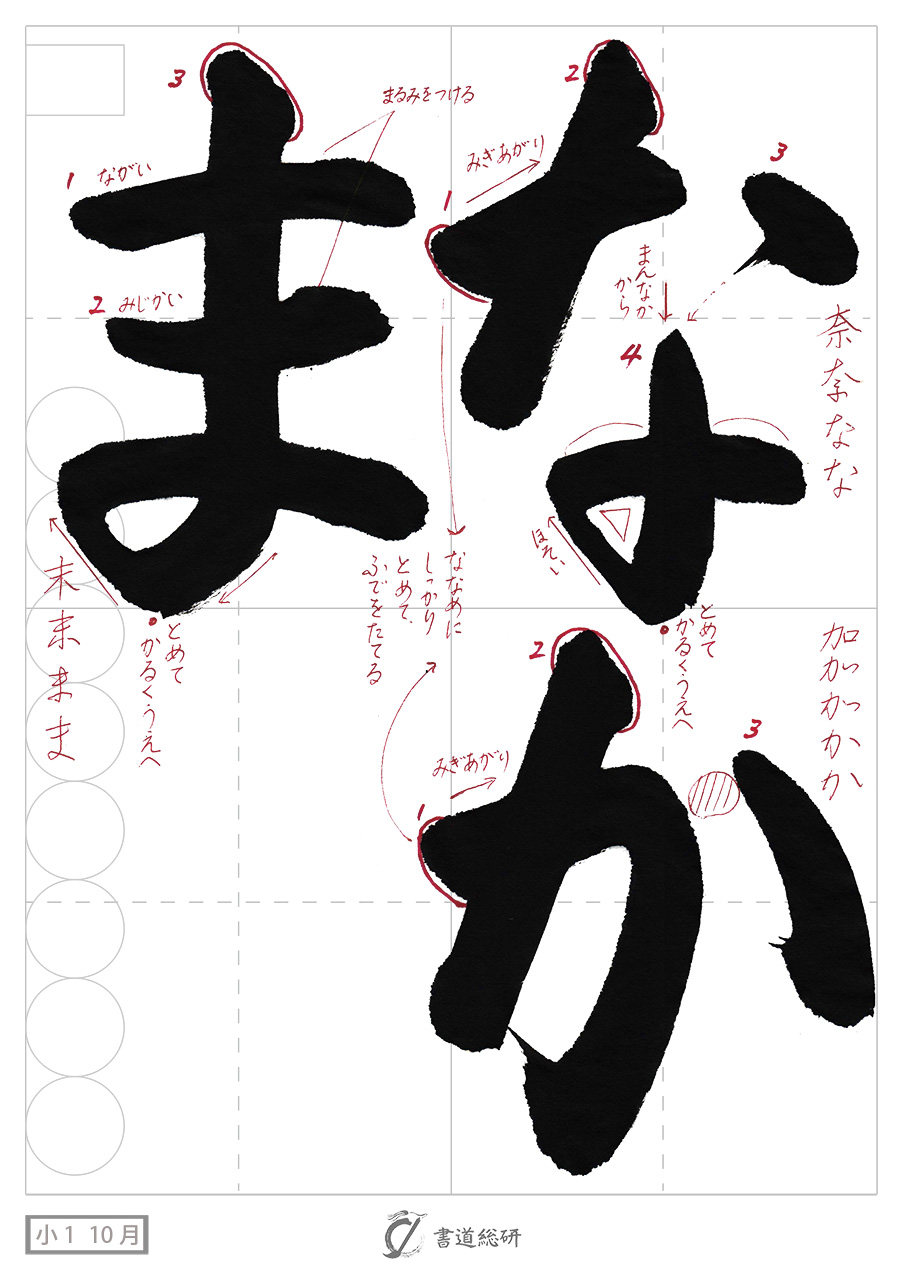 なか
ま
2
3
みぎあがり
1
まんなか
から
4
ほそい
とめて
かるく、うえへ
奈奈なな
加かがっかか
2
3
みぎあがり
1
ななめに
しっかり
とめて、
ふでをたてる
3
まるみをつける
1 ながい
2 みじかい
とめて
かるく、うえへ
末末まま
小1 10月
書道総研